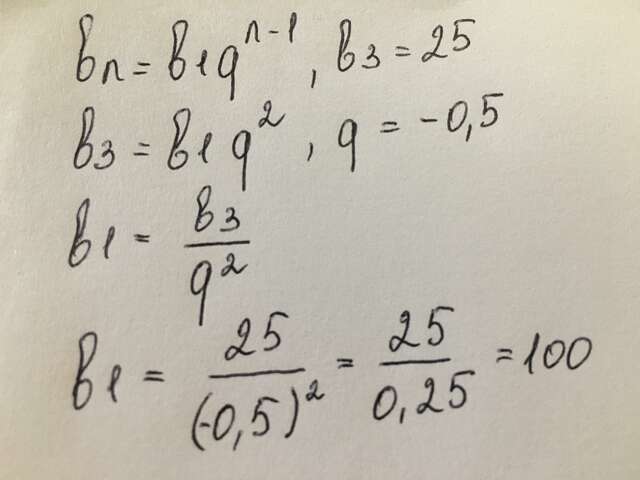 bₙ = b₁qⁿ⁻¹, b₃ = 25
b₃ = b₁q², q = -0,5
b₁ = b₃/q²
b₁ = 25/(-0,5)² = 25/0,25 = 100